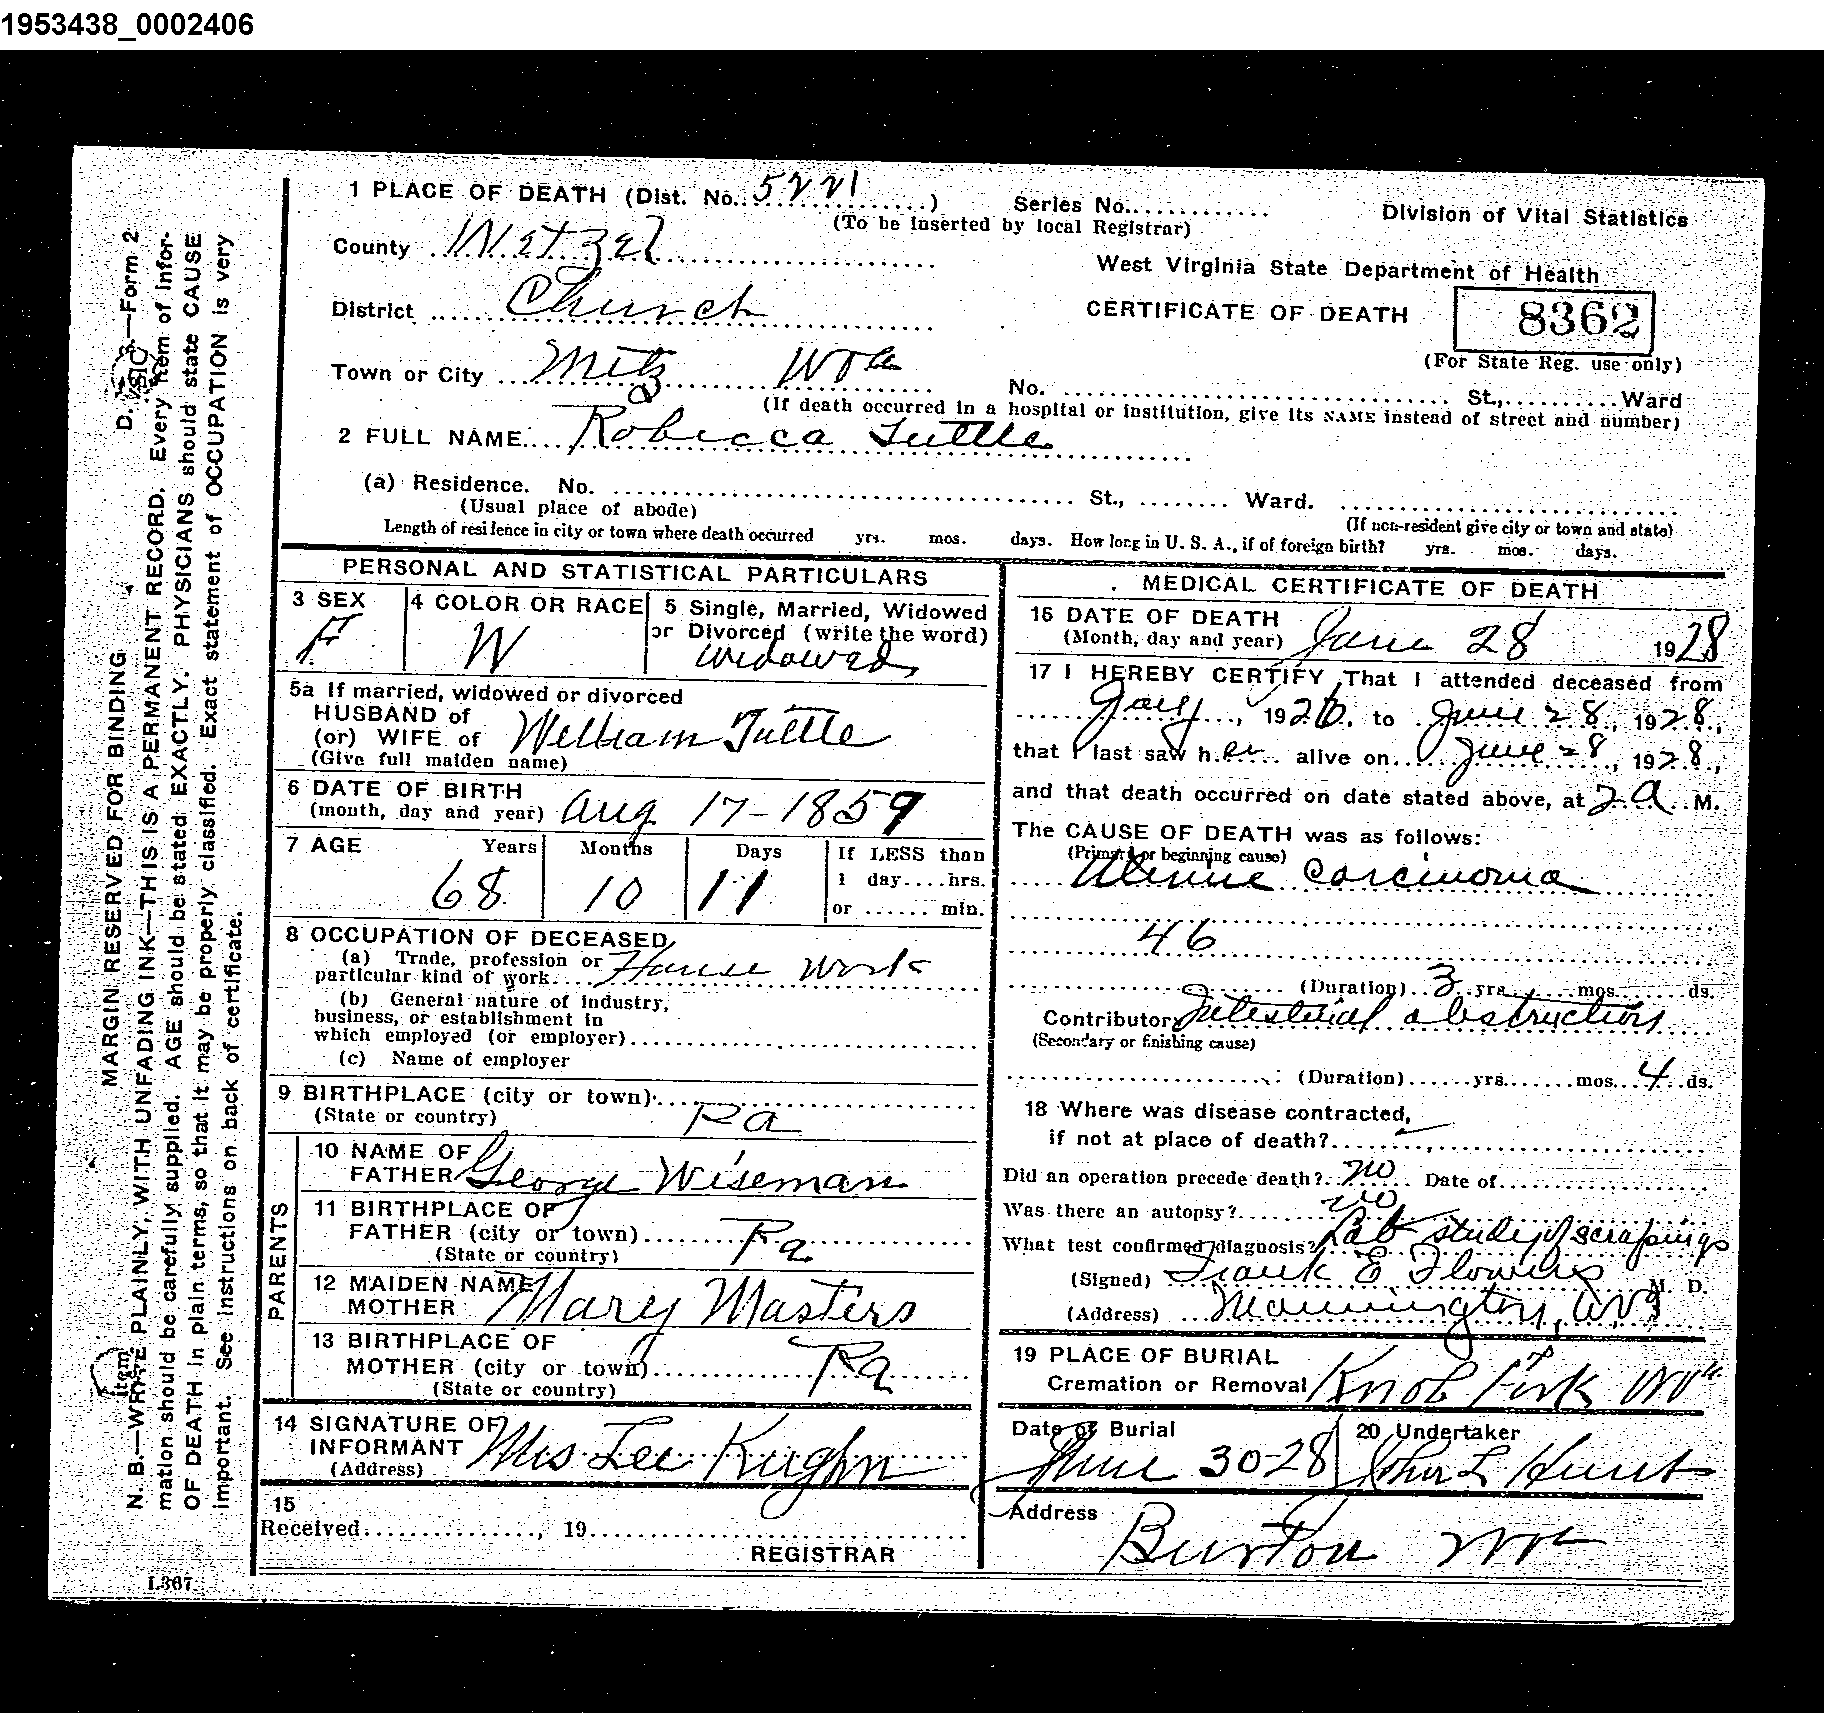 1953438_0002406
1 PLACE OF DEATH (Dist. No. 5221) Series No. Division of Vital Statistics
(To be inserted by local Registrar)
County Wetzel
West Virginia State Department of Health
District Church
CERTIFICATE OF DEATH 8362
(For State Reg. use only)
Town or City Metz WVa
No. St., Ward
(If death occurred in a hospital or institution, give its NAME instead of street and number)
2 FULL NAME Robecca Tuttle
(a) Residence. No. St., Ward.
(Usual place of abode) (If non-resident give city or town and state)
Length of residence in city or town where death occurred yrs. mos. days. How long in U. S. A., if of foreign birth? yrs. mos. days.
PERSONAL AND STATISTICAL PARTICULARS
3 SEX F
4 COLOR OR RACE W
5 Single, Married, Widowed
or Divorced (write the word)
widowed
5a If married, widowed or divorced
HUSBAND of
(or) WIFE of William Tuttle
(Give full maiden name)
6 DATE OF BIRTH
(month, day and year) Aug 17-1859
7 AGE Years Months Days If LESS than
68 10 11 1 day....hrs.
or ...... min.
8 OCCUPATION OF DECEASED
(a) Trade, profession or
particular kind of work House Work
(b) General nature of industry,
business, or establishment in
which employed (or employer)
(c) Name of employer
9 BIRTHPLACE (city or town)
(State or country) Pa
PARENTS
10 NAME OF
FATHER George Wiseman
11 BIRTHPLACE OF
FATHER (city or town)
(State or country) Pa
12 MAIDEN NAME
MOTHER Mary Masters
13 BIRTHPLACE OF
MOTHER (city or town) Pa
(State or country)
14 SIGNATURE OF
INFORMANT Mrs Lee
(Address)
15
Received , 19
REGISTRAR
MEDICAL CERTIFICATE OF DEATH
16 DATE OF DEATH
(Month, day and year) June 28 1928
17 I HEREBY CERTIFY That I attended deceased from
, 1926. to June 28, 1928,
that I last saw her alive on June 28, 1928,
and that death occurred on date stated above, at 2 a M.
The CAUSE OF DEATH was as follows:
(Primary or beginning cause)
Uterine Carcinoma
46
(Duration) 3 yrs. mos. ds.
Contributory Intestinal obstruction
(Secondary or finishing cause)
(Duration) yrs. mos. 4 ds.
18 Where was disease contracted,
if not at place of death?
Did an operation precede death? no Date of
Was there an autopsy? no
What test confirmed diagnosis? Lab study of scrapings
(Signed) Frank E Flowers M. D.
(Address) Mannington, WVa
19 PLACE OF BURIAL
Cremation or Removal Knob Fork WVa
Date of Burial
June 30-28
20 Undertaker
John L Hunt
Address
Burton WVa
D. V. S.—Form 2
MARGIN RESERVED FOR BINDING
N. B.—WRITE PLAINLY, WITH UNFADING INK—THIS IS A PERMANENT RECORD. Every item of infor-
mation should be carefully supplied. AGE should be stated EXACTLY. PHYSICIANS should state CAUSE
OF DEATH in plain terms, so that it may be properly classified. Exact statement of OCCUPATION is very
important. See instructions on back of certificate.
L367